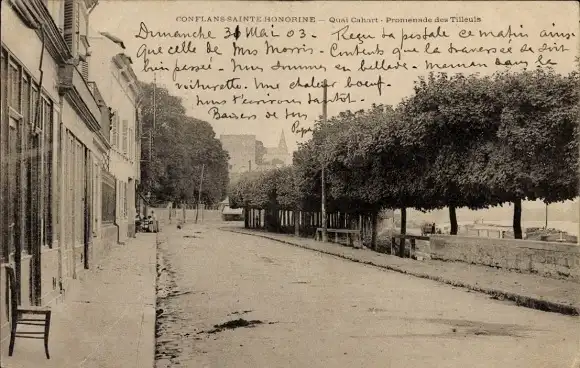 CONFLANS-SAINTE-HONORINE – Quai Cahart - Promenade des Tilleuls
Dimanche 31 Mai 03. Reçu ta postale ce matin ainsi
que celle de Mrs Morris. Contents que la traversée se soit
bien passée. Nous sommes en ballade. Maman dans la
voiturette. Une chaleur bœuf.
Nous t'écrivons tantôt.
Baisers de tous
Papa